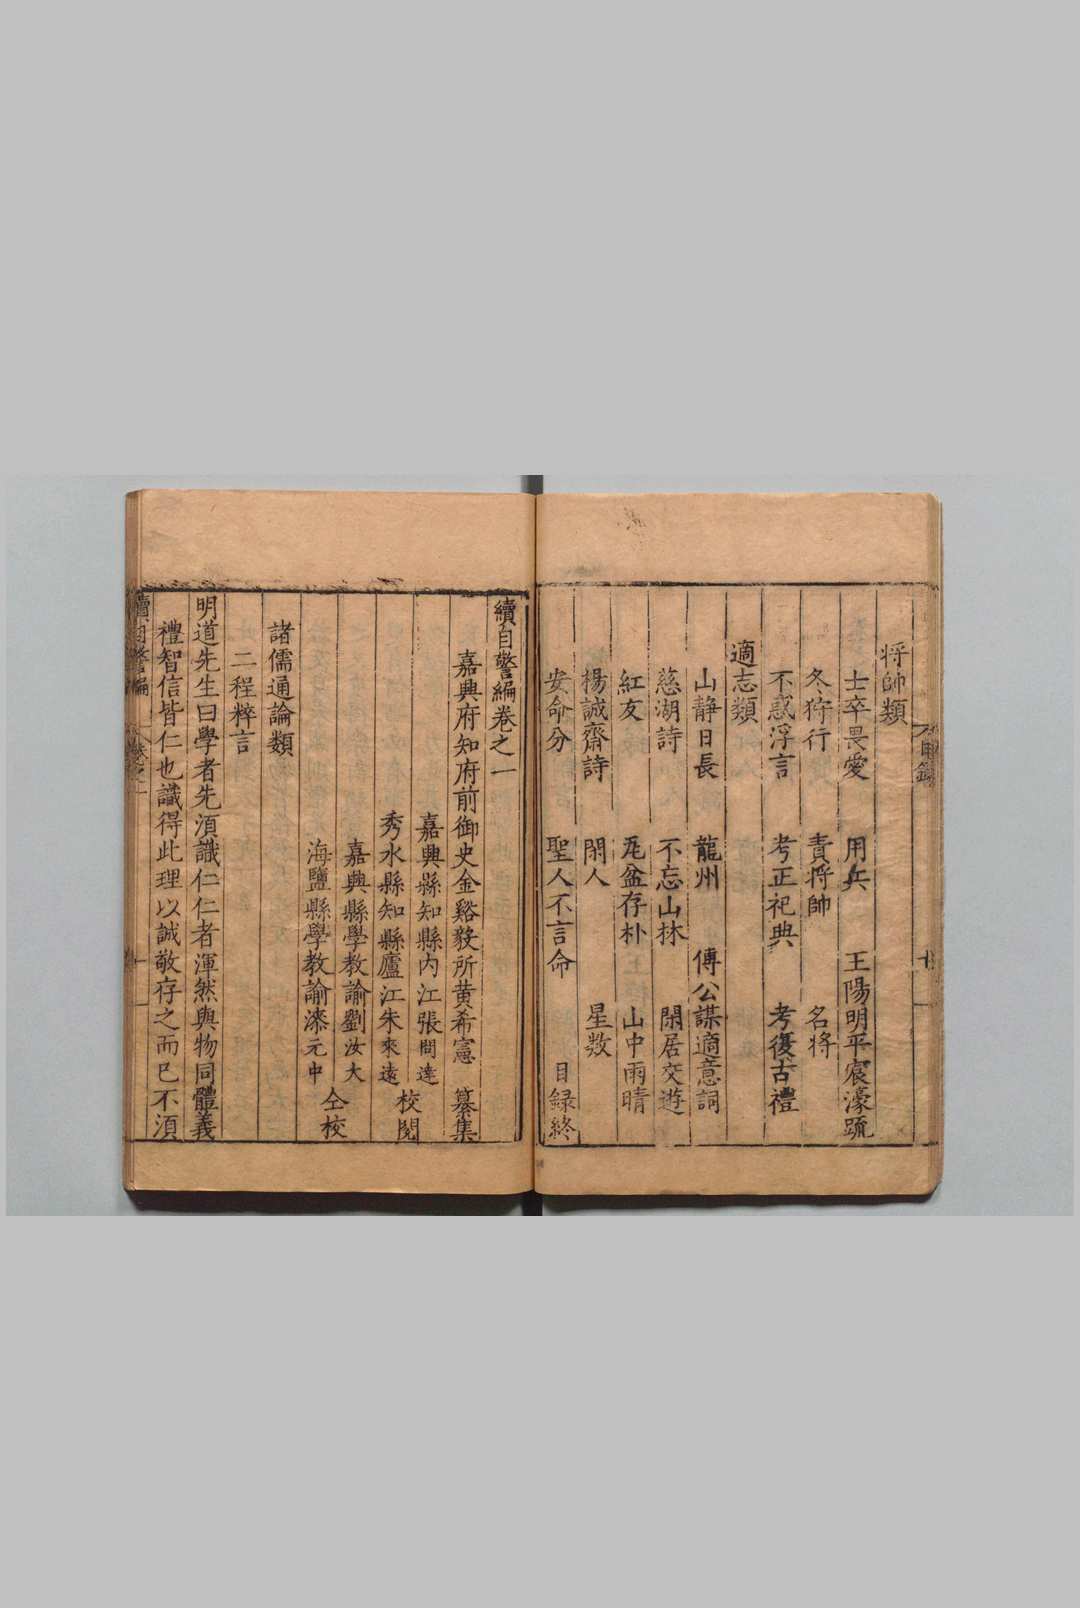 目錄 十
將帥類
士卒畏愛 用兵 王陽明平宸濠䟽
冬狩行 責將帥 名將
不惑浮言 考正祀典 考復古禮
適志類
山靜日長 龍州 傅公謀適意詞
慈湖詩 不忘山林 閑居交遊
紅友 瓦盆存朴 山中雨晴
楊誠齋詩 閑人 星數
安命分 聖人不言命 目錄終
續自警編卷之一
嘉興府知府前御史金谿毅所黄希憲 纂集
嘉興縣知縣内江張問達
秀水縣知縣廬江朱來遠 校閱
嘉興縣學教諭劉汝大
海鹽縣學教諭漆元中 仝校
諸儒通論類
二程粹言
明道先生曰學者先湏識仁仁者渾然與物同體義
禮智信皆仁也識得此理以誠敬存之而巳不湏
續自警編 卷之一 一